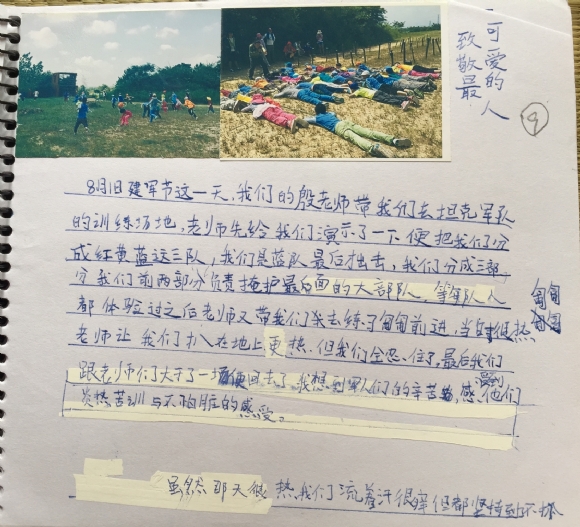 致敬最
可爱的人
9
8月1日建军节这一天,我们的殷老师带我们去坦克军队
的训练场地,老师先给我们演示了一下便把我们分
成红黄蓝这三队,我们是蓝队最后出去,我们分成三部
分我们前两部分负责掩护最后面的大部队,等军队人
都体验过之后老师又带我们来去练习匍匐前进,当时很热
匍匐
老师让我们扒在地上更热,但我们全忍住了,最后我们
跟老师们大干了一场便回去了。我想到军人们的辛苦,感受到他们
炎热苦训与不怕脏的感受。
虽然那天很热我们流着汗很痒但都坚持到